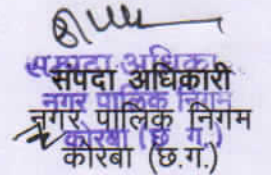 सम्पदा अधिकारी
नगर पालिक निगम
कोरबा (छ. ग.)
संपदा अधिकारी
नगर पालिक निगम
कोरबा (छ.ग.)